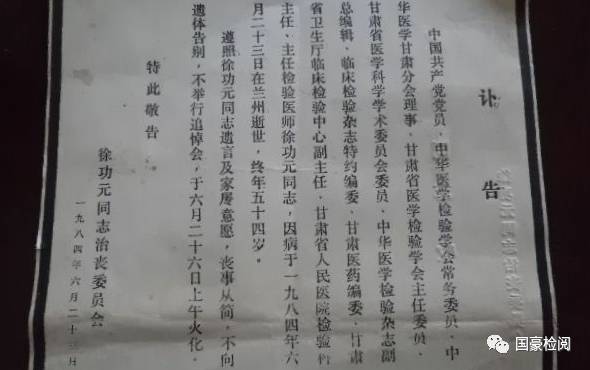 讣告
中国共产党党员、中华医学检验学会常务委员、中
华医学甘肃分会理事、甘肃省医学检验学会主任委员、
甘肃省医学科学学术委员会委员、中华医学检验杂志副
总编辑、临床检验杂志特约编委、甘肃医药编委、甘肃
省卫生厅临床检验中心副主任、甘肃省人民医院检验科
主任、主任检验医师徐功元同志，因病于一九八四年六
月二十三日在兰州逝世，终年五十四岁。
遵照徐功元同志遗言及家属意愿，丧事从简，不向
遗体告别，不举行追悼会，于六月二十六日上午火化。
特此敬告
徐功元同志治丧委员会
一九八四年六月二十三日
国豪检阅